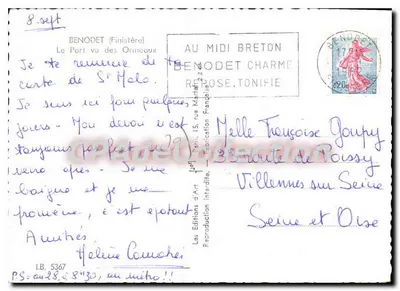 8. sept
BENODET (Finistère)
Le Port vu des Ormeaux
Je te remercie de ta
carte de St Malo.
Je suis ici pour quelques
jours - Mon devoir n'est
toujours pas fait, on
verra après - Je me
baigne et je me
promène, c'est épatant
Amitiés
Hélène
P.S: au 28, à 8h30, un métro!!
I.B. 5367
AU MIDI BRETON
BENODET CHARME
REPOSE, TONIFIE
BENODET
Les Editions d'Art
Reproduction Interdite.
Melle Françoise Goupy
28 route de Poissy
Villennes sur Seine
Seine et Oise